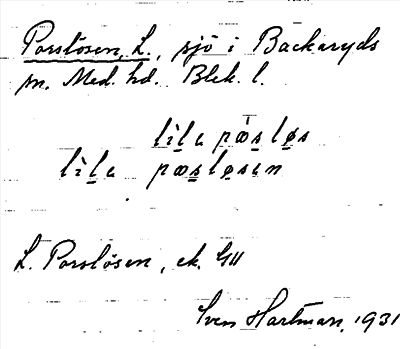 Porslösen, L., sjö i Backaryds
sn. Med. hd. Blek. l.
lìla pòsløs
lìla pæsløsen
L. Porslösen, ek. GII
Sven Hartman, 1931